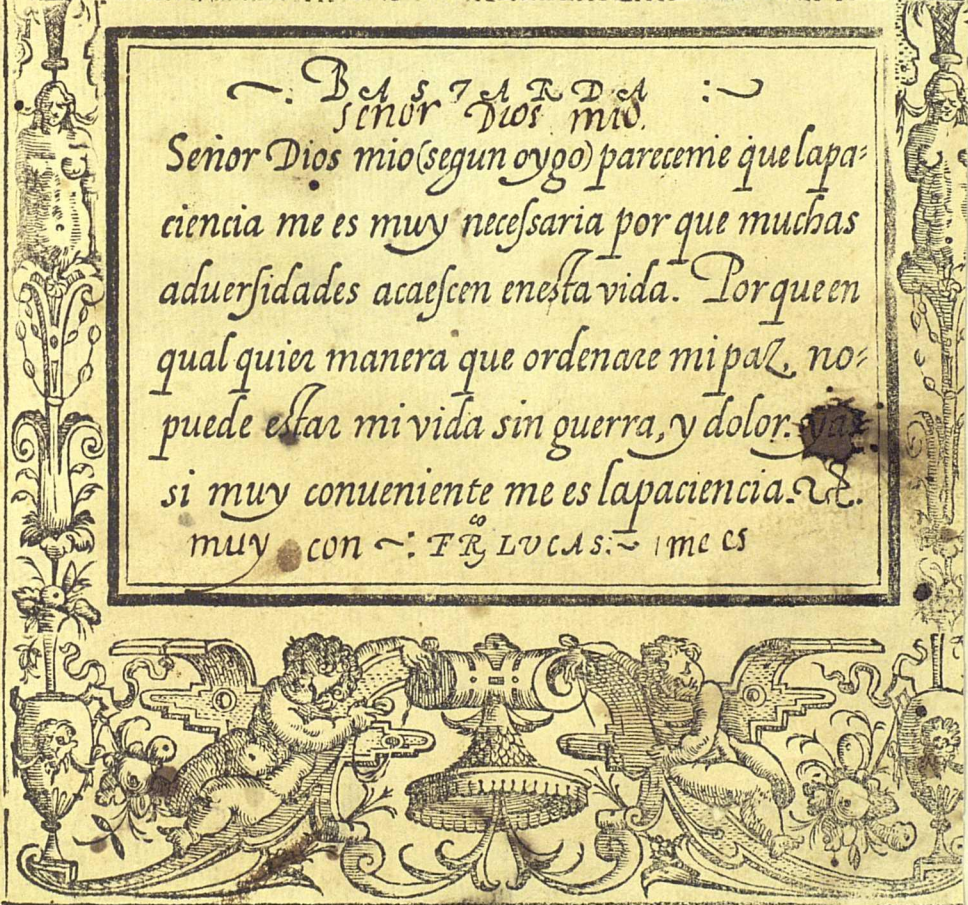 ~. BASTARDA :~
señor Dios mio.
Señor Dios mio (segun oygo) pareceme que lapa=
ciencia me es muy neceſsaria por que muchas
aduerſidades acaeſcen enesta vida. Por que en
qual quier manera que ordenare mi paz, no=
puede estar mi vida sin guerra, y dolor. yas=
si muy conueniente me es lapaciencia.
muy con ~: FR,co LVCAS:~ me es